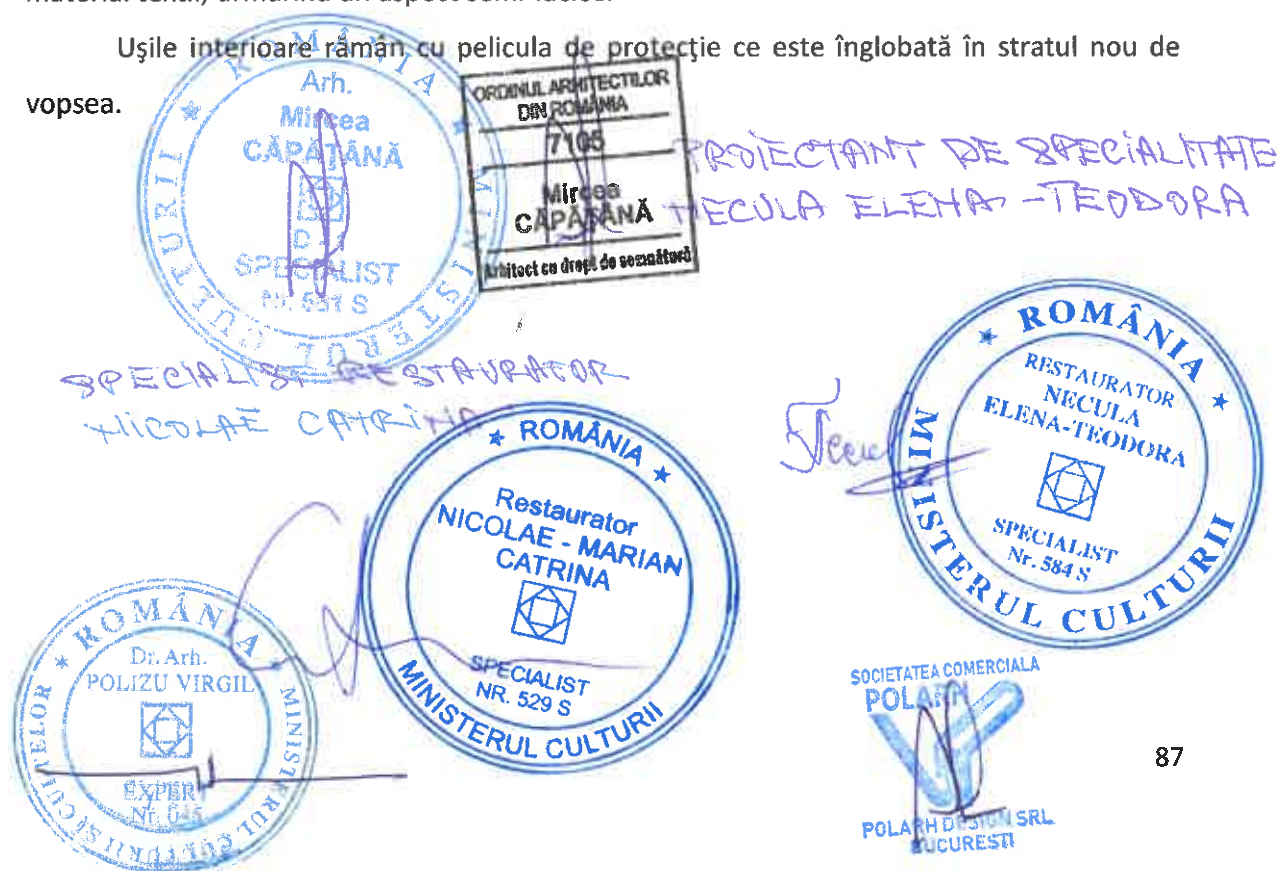 Ușile interioare rămân cu pelicula de protecție ce este înglobată în stratul nou de
vopsea.
ROMÂNIA
MINISTERUL CULTURII
Arh.
Mircea
CĂPĂȚÂNĂ
SPECIALIST
Nr. 551 S
ORDINUL ARHITECTILOR
DIN ROMÂNIA
7105
Mircea
CĂPĂȚÂNĂ
Arhitect cu drept de semnătură
PROIECTANT DE SPECIALITATE
NECULA ELENA-TEODORA
SPECIALIST RESTAURATOR
NICOLAE CATRINA
ROMÂNIA
MINISTERUL CULTURII
Restaurator
NICOLAE - MARIAN
CATRINA
SPECIALIST
NR. 529 S
ROMÂNIA
MINISTERUL CULTURII
RESTAURATOR
NECULA
ELENA-TEODORA
SPECIALIST
Nr. 584 S
ROMÂNIA
MINISTERUL CULTURII ȘI CULTELOR
Dr. Arh.
POLIZU VIRGIL
EXPERT
SOCIETATEA COMERCIALA
POLARH
POLARH DESIGN SRL
BUCURESTI
87